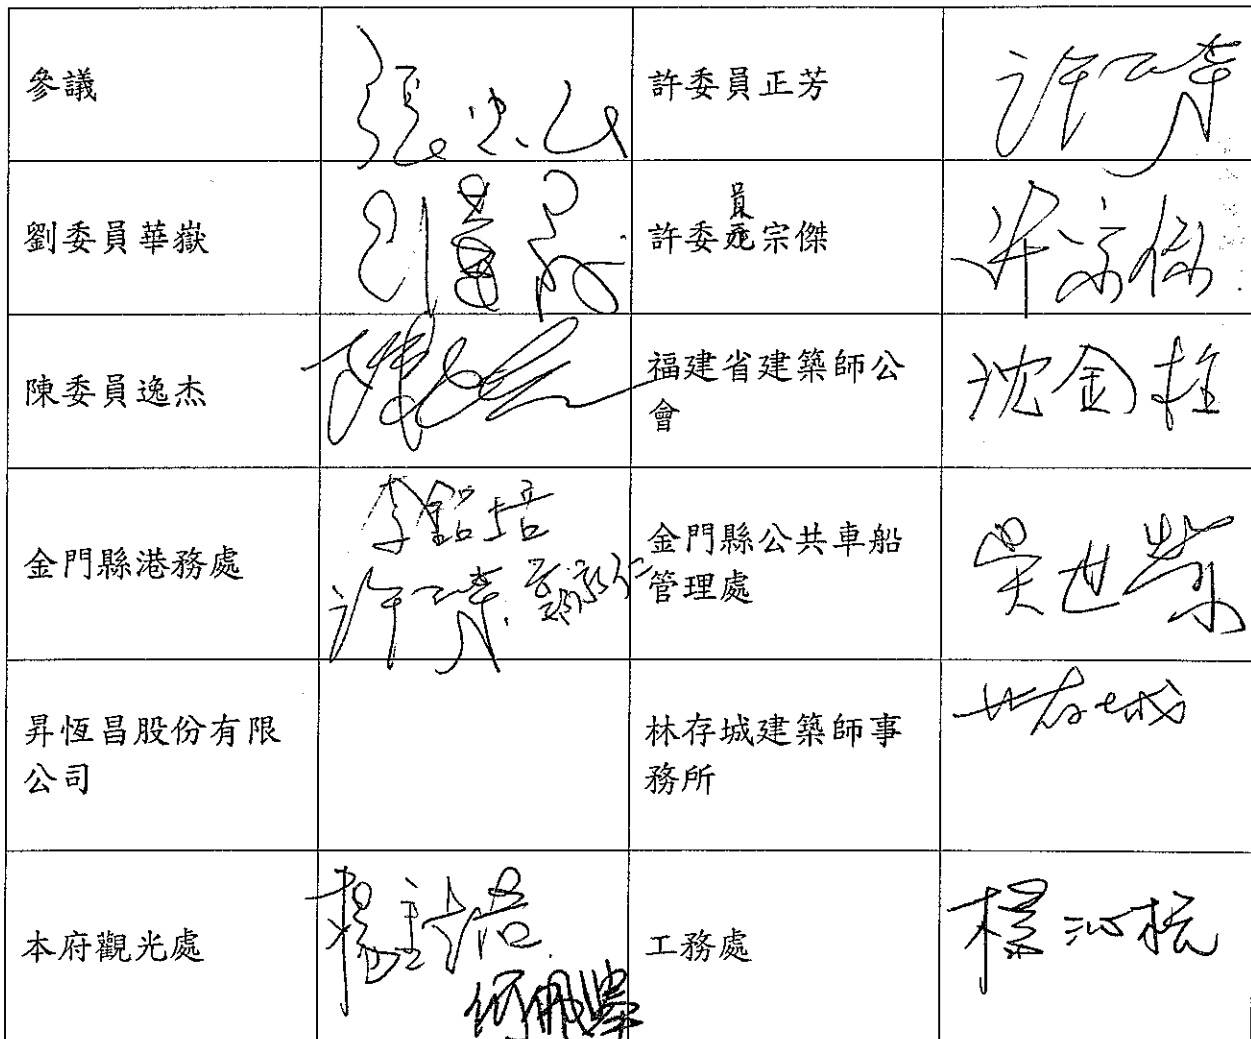 參議
許委員正芳
許正芳
劉委員華嶽
劉華嶽
許委員宗傑
許宗傑
陳委員逸杰
陳逸杰
福建省建築師公
會
沈金柱
金門縣港務處
李銘培
許正芳
金門縣公共車船
管理處
吳世榮
昇恆昌股份有限
公司
林存城建築師事
務所
林存城
本府觀光處
工務處